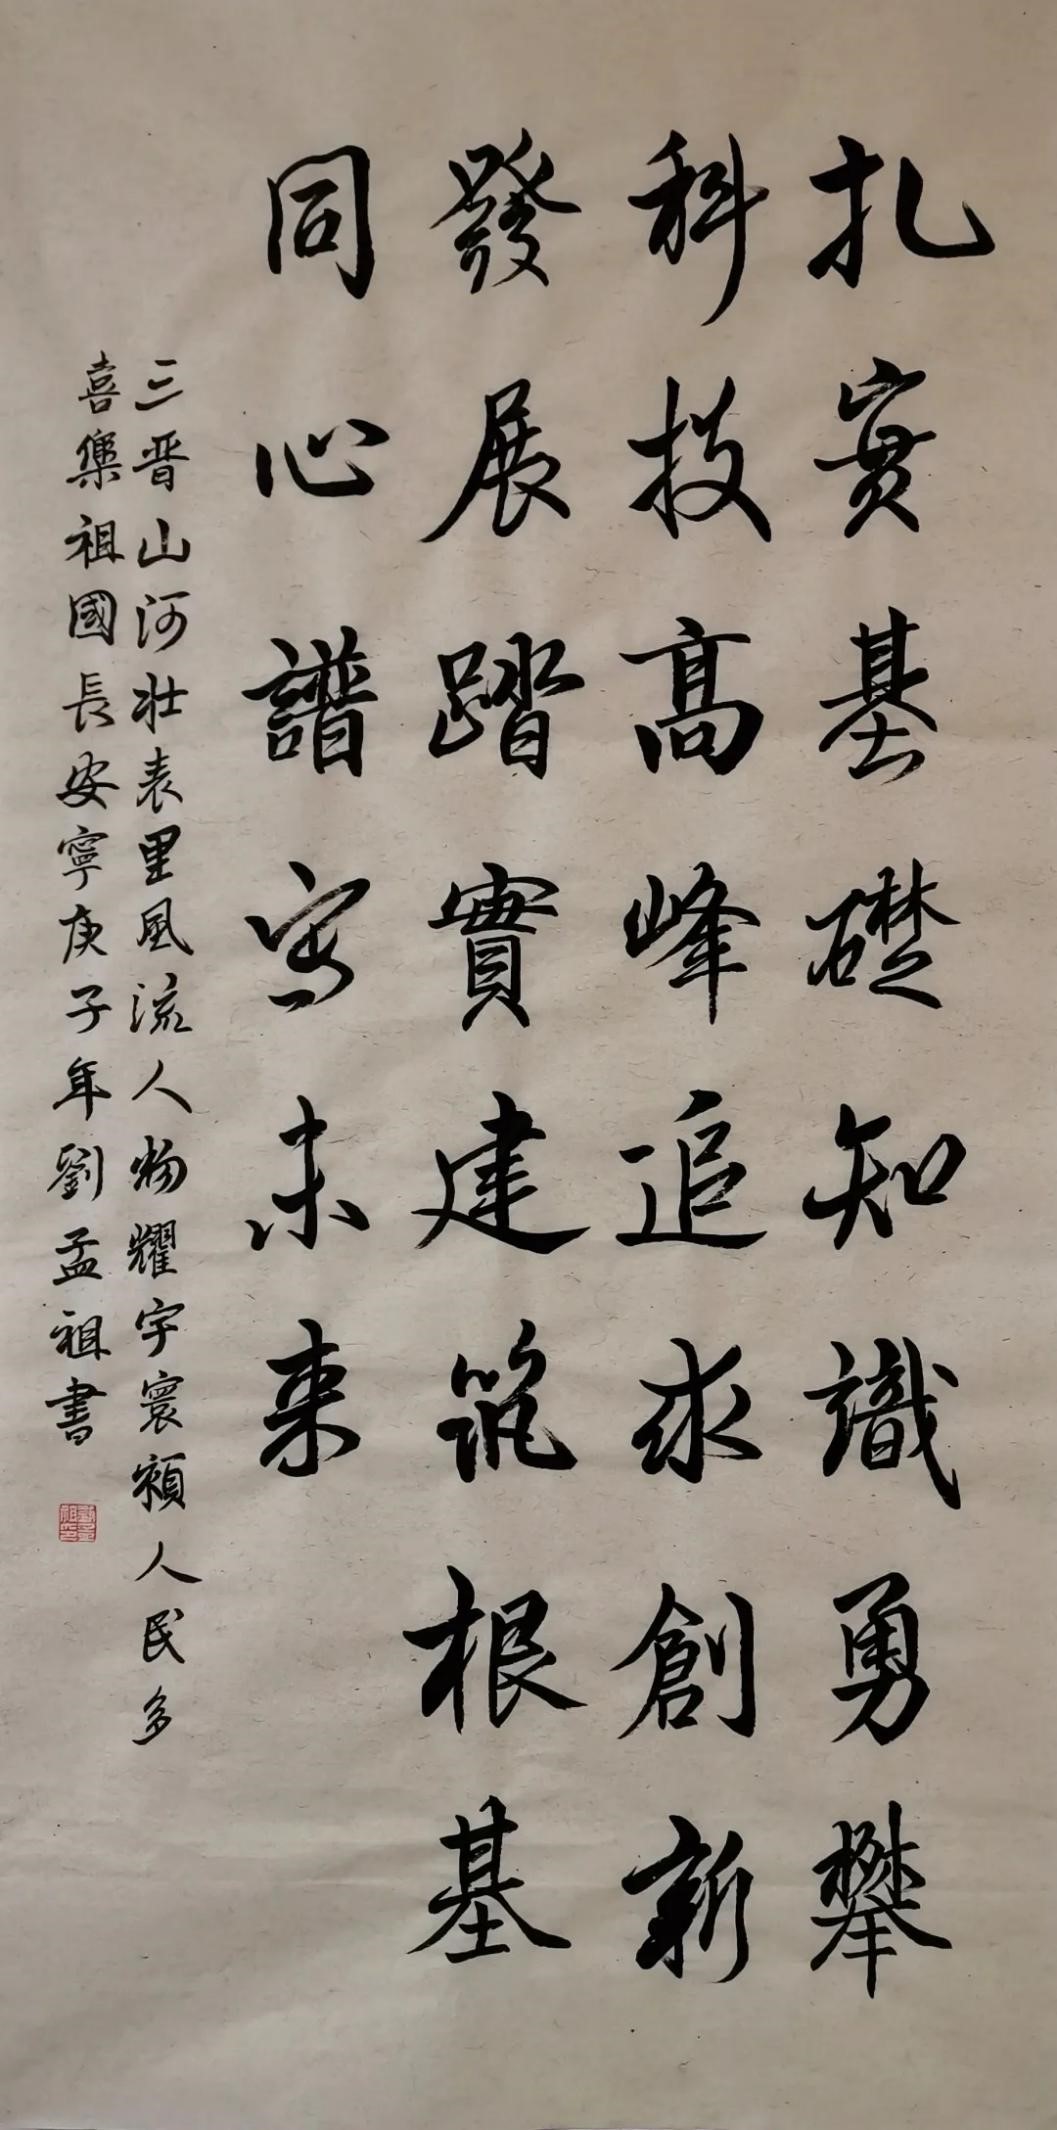 扎實基礎知識勇攀
科技高峰追求創新
發展踏實建筑根基
同心譜写未来
三晋山河壮表里風流人物耀宇寰願人民多
喜樂祖國長安寧庚子年劉孟祖書